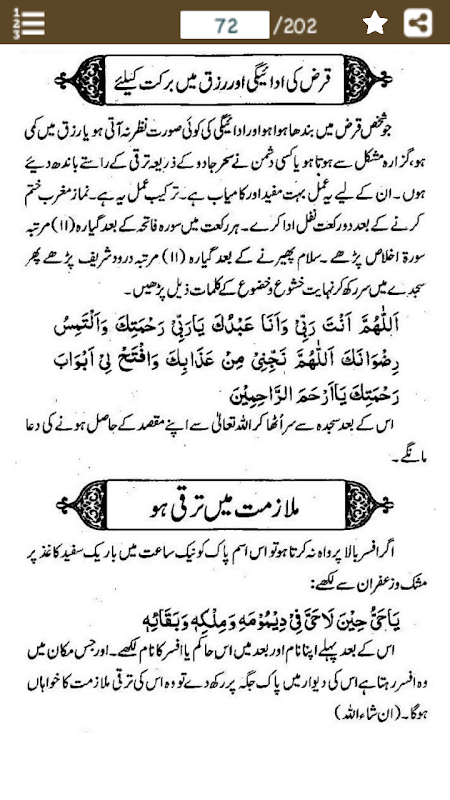 72 /202
قرض کی ادائیگی اور رزق میں برکت کیلئے
جو شخص قرض میں بندھا ہوا ہو اور ادائیگی کی کوئی صورت نظر نہ آتی ہو یا رزق میں کمی
ہو، گزارہ مشکل سے ہوتا ہو یا کسی دشمن نے سحر جادو کے ذریعہ ترقی کے راستے باندھ دیئے
ہوں۔ ان کے لیے یہ عمل بہت مفید اور کامیاب ہے۔ ترکیب عمل یہ ہے۔ نماز مغرب ختم
کرنے کے بعد دو رکعت نفل ادا کرے۔ ہر رکعت میں سورہ فاتحہ کے بعد گیارہ (۱۱) مرتبہ
سورۃ اخلاص پڑھے۔ سلام پھیرنے کے بعد گیارہ (۱۱) مرتبہ درود شریف پڑھے پھر
سجدے میں سر رکھ کر نہایت خشوع و خضوع کے کلمات ذیل پڑھیں۔
اَللّٰهُمَّ اَنْتَ رَبِّیْ وَاَنَا عَبْدُكَ یَارَبِّیْ رَحْمَتِكَ وَالْتَمِسُ
رِضْوَانَكَ اَللّٰهُمَّ نَجِّنِیْ مِنْ عَذَابِكَ وَافْتَحْ لِیْ اَبْوَابَ
رَحْمَتِكَ یَااَرْحَمَ الرَّاحِمِیْنَ
اس کے بعد سجدہ سے سر اُٹھا کر اللہ تعالیٰ سے اپنے مقصد کے حاصل ہونے کی دعا
مانگے۔
ملازمت میں ترقی ہو
اگر افسر بالا پرواہ نہ کرتا ہو تو اس اسم پاک کو نیک ساعت میں باریک سفید کاغذ پر
مشک و زعفران سے لکھے:
یَاحَیُّ حِیْنَ لَاحَیَّ فِیْ دِیْمُوْمَهِ وَمِلْكِهٖ وَبَقَائِهٖ
اس کے بعد پہلے اپنا نام اور بعد میں اس حاکم یا افسر کا نام لکھے۔ اور جس مکان میں
وہ افسر رہتا ہے اس کی دیوار میں پاک جگہ پر رکھ دے تو وہ اس کی ترقی ملازمت کا خواہاں
ہوگا۔ (ان شاء اللہ)